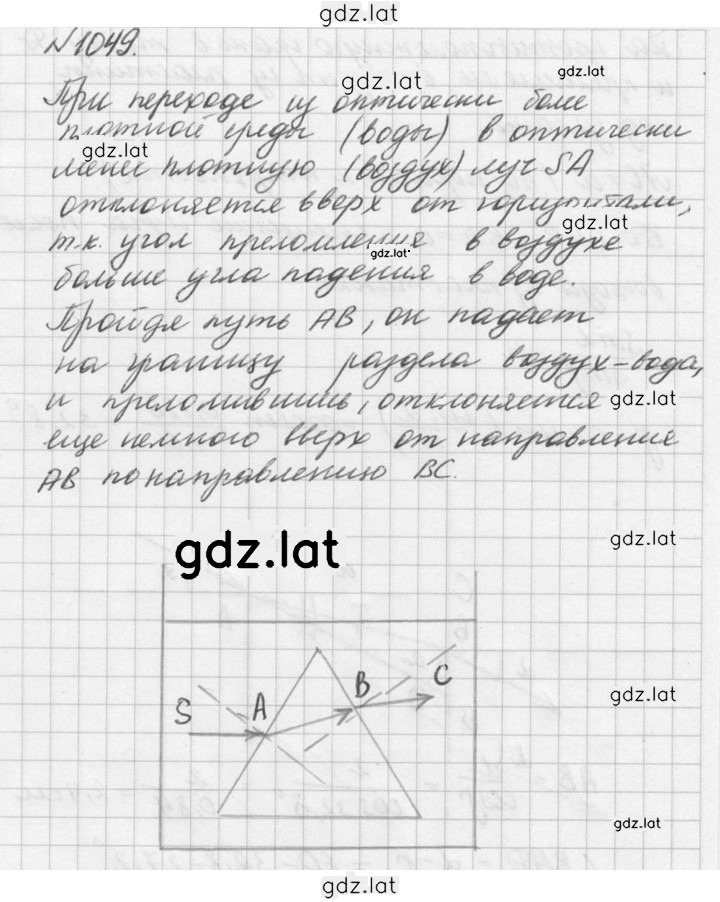 gdz.lat
№1049.
gdz.lat
gdz.lat
При переходе из оптически более
плотной среды (воды) в оптически
gdz.lat
менее плотную (воздух) луч SA
отклоняется вверх от горизонтали,
gdz.lat
т.к. угол преломления в воздухе
gdz.lat
больше угла падения в воде.
Пройдя путь AB, он падает
на границу раздела воздух-вода,
и преломившись, отклоняется
gdz.lat
еще немного вверх от направления
AB по направлению BC.
gdz.lat
gdz.lat
S A B C
gdz.lat
gdz.lat
gdz.lat